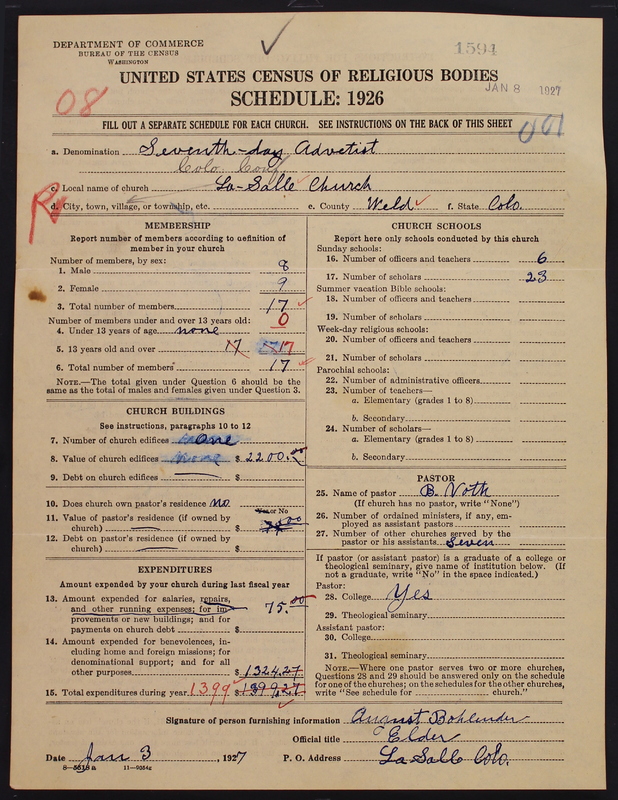 DEPARTMENT OF COMMERCE
BUREAU OF THE CENSUS
WASHINGTON
1594
UNITED STATES CENSUS OF RELIGIOUS BODIES
JAN 8 1927
SCHEDULE: 1926
08
FILL OUT A SEPARATE SCHEDULE FOR EACH CHURCH. SEE INSTRUCTIONS ON THE BACK OF THIS SHEET
a. Denomination Seventh-day Advetist
Colo. Conf
c. Local name of church La-Salle Church
d. City, town, village, or township, etc. e. County Weld f. State Colo.
MEMBERSHIP
Report number of members according to definition of
member in your church
Number of members, by sex:
1. Male 8
2. Female 9
3. Total number of members 17
Number of members under and over 13 years old: 0
4. Under 13 years of age none
5. 13 years old and over 17 17
6. Total number of members 17
NOTE.—The total given under Question 6 should be the
same as the total of males and females given under Question 3.
CHURCH BUILDINGS
See instructions, paragraphs 10 to 12
7. Number of church edifices One
8. Value of church edifices None $ 2200.00
9. Debt on church edifices $
10. Does church own pastor's residence no.
Yes or No
11. Value of pastor's residence (if owned by
church) $
12. Debt on pastor's residence (if owned by
church) $
EXPENDITURES
Amount expended by your church during last fiscal year
13. Amount expended for salaries, repairs,
and other running expenses; for im-
provements or new buildings; and for
payments on church debt $ 75.00
14. Amount expended for benevolences, in-
cluding home and foreign missions; for
denominational support; and for all
other purposes $ 1324.27
15. Total expenditures during year 1399 $ 1399.27
CHURCH SCHOOLS
Report here only schools conducted by this church
Sunday schools:
16. Number of officers and teachers 6
17. Number of scholars 23
Summer vacation Bible schools:
18. Number of officers and teachers
19. Number of scholars
Week-day religious schools:
20. Number of officers and teachers
21. Number of scholars
Parochial schools:
22. Number of administrative officers
23. Number of teachers—
a. Elementary (grades 1 to 8)
b. Secondary
24. Number of scholars—
a. Elementary (grades 1 to 8)
b. Secondary
PASTOR
25. Name of pastor B. Voth
(If church has no pastor, write "None")
26. Number of ordained ministers, if any, em-
ployed as assistant pastors
27. Number of other churches served by the
pastor or his assistants Seven
If pastor (or assistant pastor) is a graduate of a college or
theological seminary, give name of institution below. (If
not a graduate, write "No" in the space indicated.)
Pastor:
28. College Yes
29. Theological seminary
Assistant pastor:
30. College
31. Theological seminary
NOTE.—Where one pastor serves two or more churches,
Questions 28 and 29 should be answered only on the schedule
for one of the churches; on the schedules for the other churches,
write "See schedule for church."
Signature of person furnishing information August Bohlender
Official title Elder
Date Jan 3, 1927 P. O. Address La Salle Colo.
8—5518 a 11—9554g